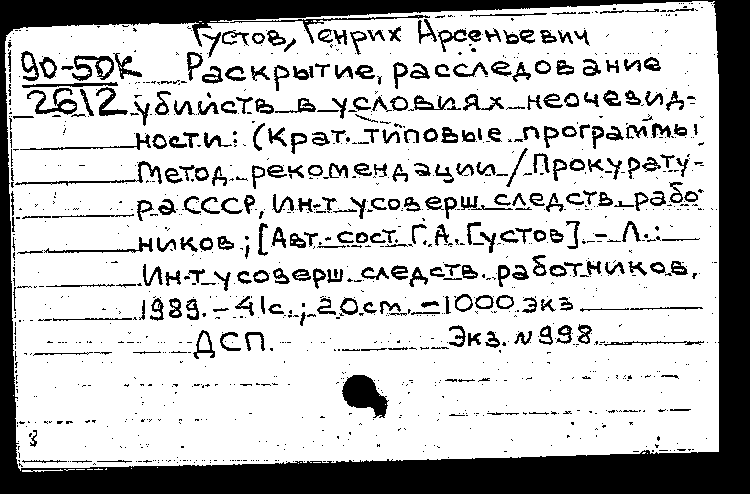 Густов, Генрих Арсеньевич
90-50К Раскрытие, расследование
2612 убийств в условиях неочевид-
ности: (Крат. типовые программы
Метод. рекомендации / Прокурату-
ра СССР, Ин-т усоверш. следств. рабо
ников; [Авт.-сост. Г.А. Густов]. – Л.:
Ин-т усоверш. следств. работников,
1989. – 41с.; 20см. – 1000 экз
ДСП. Экз. N 998